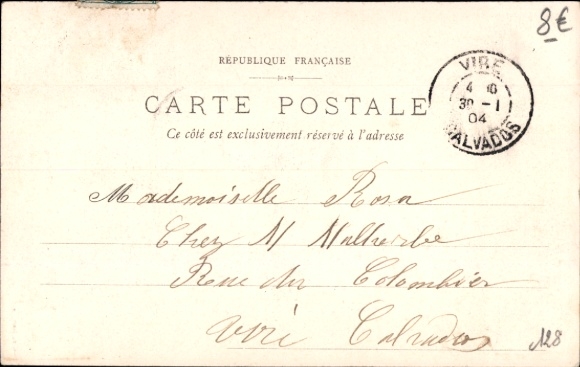 8€
RÉPUBLIQUE FRANÇAISE
CARTE POSTALE
Ce côté est exclusivement réservé à l'adresse
VIRE
4 10
30 - 1
04
CALVADOS
Mademoiselle Rosa
Chez M Malherbe
Rue du Colombier
Vire Calvados
128